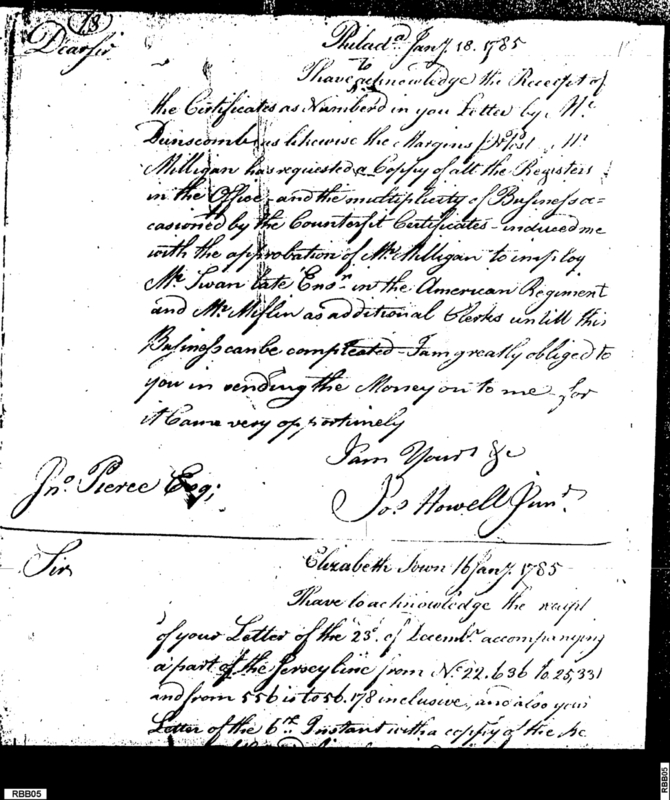 78
Philada. Jany 18. 1785
Dear Sir
I have to acknowledge the Receipt of
the Certificates as Numberd in you Letter by Mr.
Dunscomb, as likewise the Margins Post Mr
Milligan has requested a Coppy of all the Registers
in the Office - and the multiplicity of Business oc=
casioned by the Counterfit Certificates - induced me
with the approbation of Mr. Milligan to imploy
Mr. Swan late Ensn. in the American Regiment
and Mr. Miflin as additional Clerks untill this
Business can be compleated - I am greatly obliged to
you in sending the Money on to me - for
it Came very opportunely
I am Yours &c
Jno. Pierce Esq;
Jos. Howell Junr.
Elizabeth Town 16 Jany. 1785
Sir
I have to acknowledge the receipt
of your Letter of the 23d. of Decembr. accompanying
a part of the Jersey line from No. 22.636 to 25,331
and from 556 is to 56.178 inclusive, and also your
Letter of the 6th. Instant with a coppy of the
RBB05
RBB05